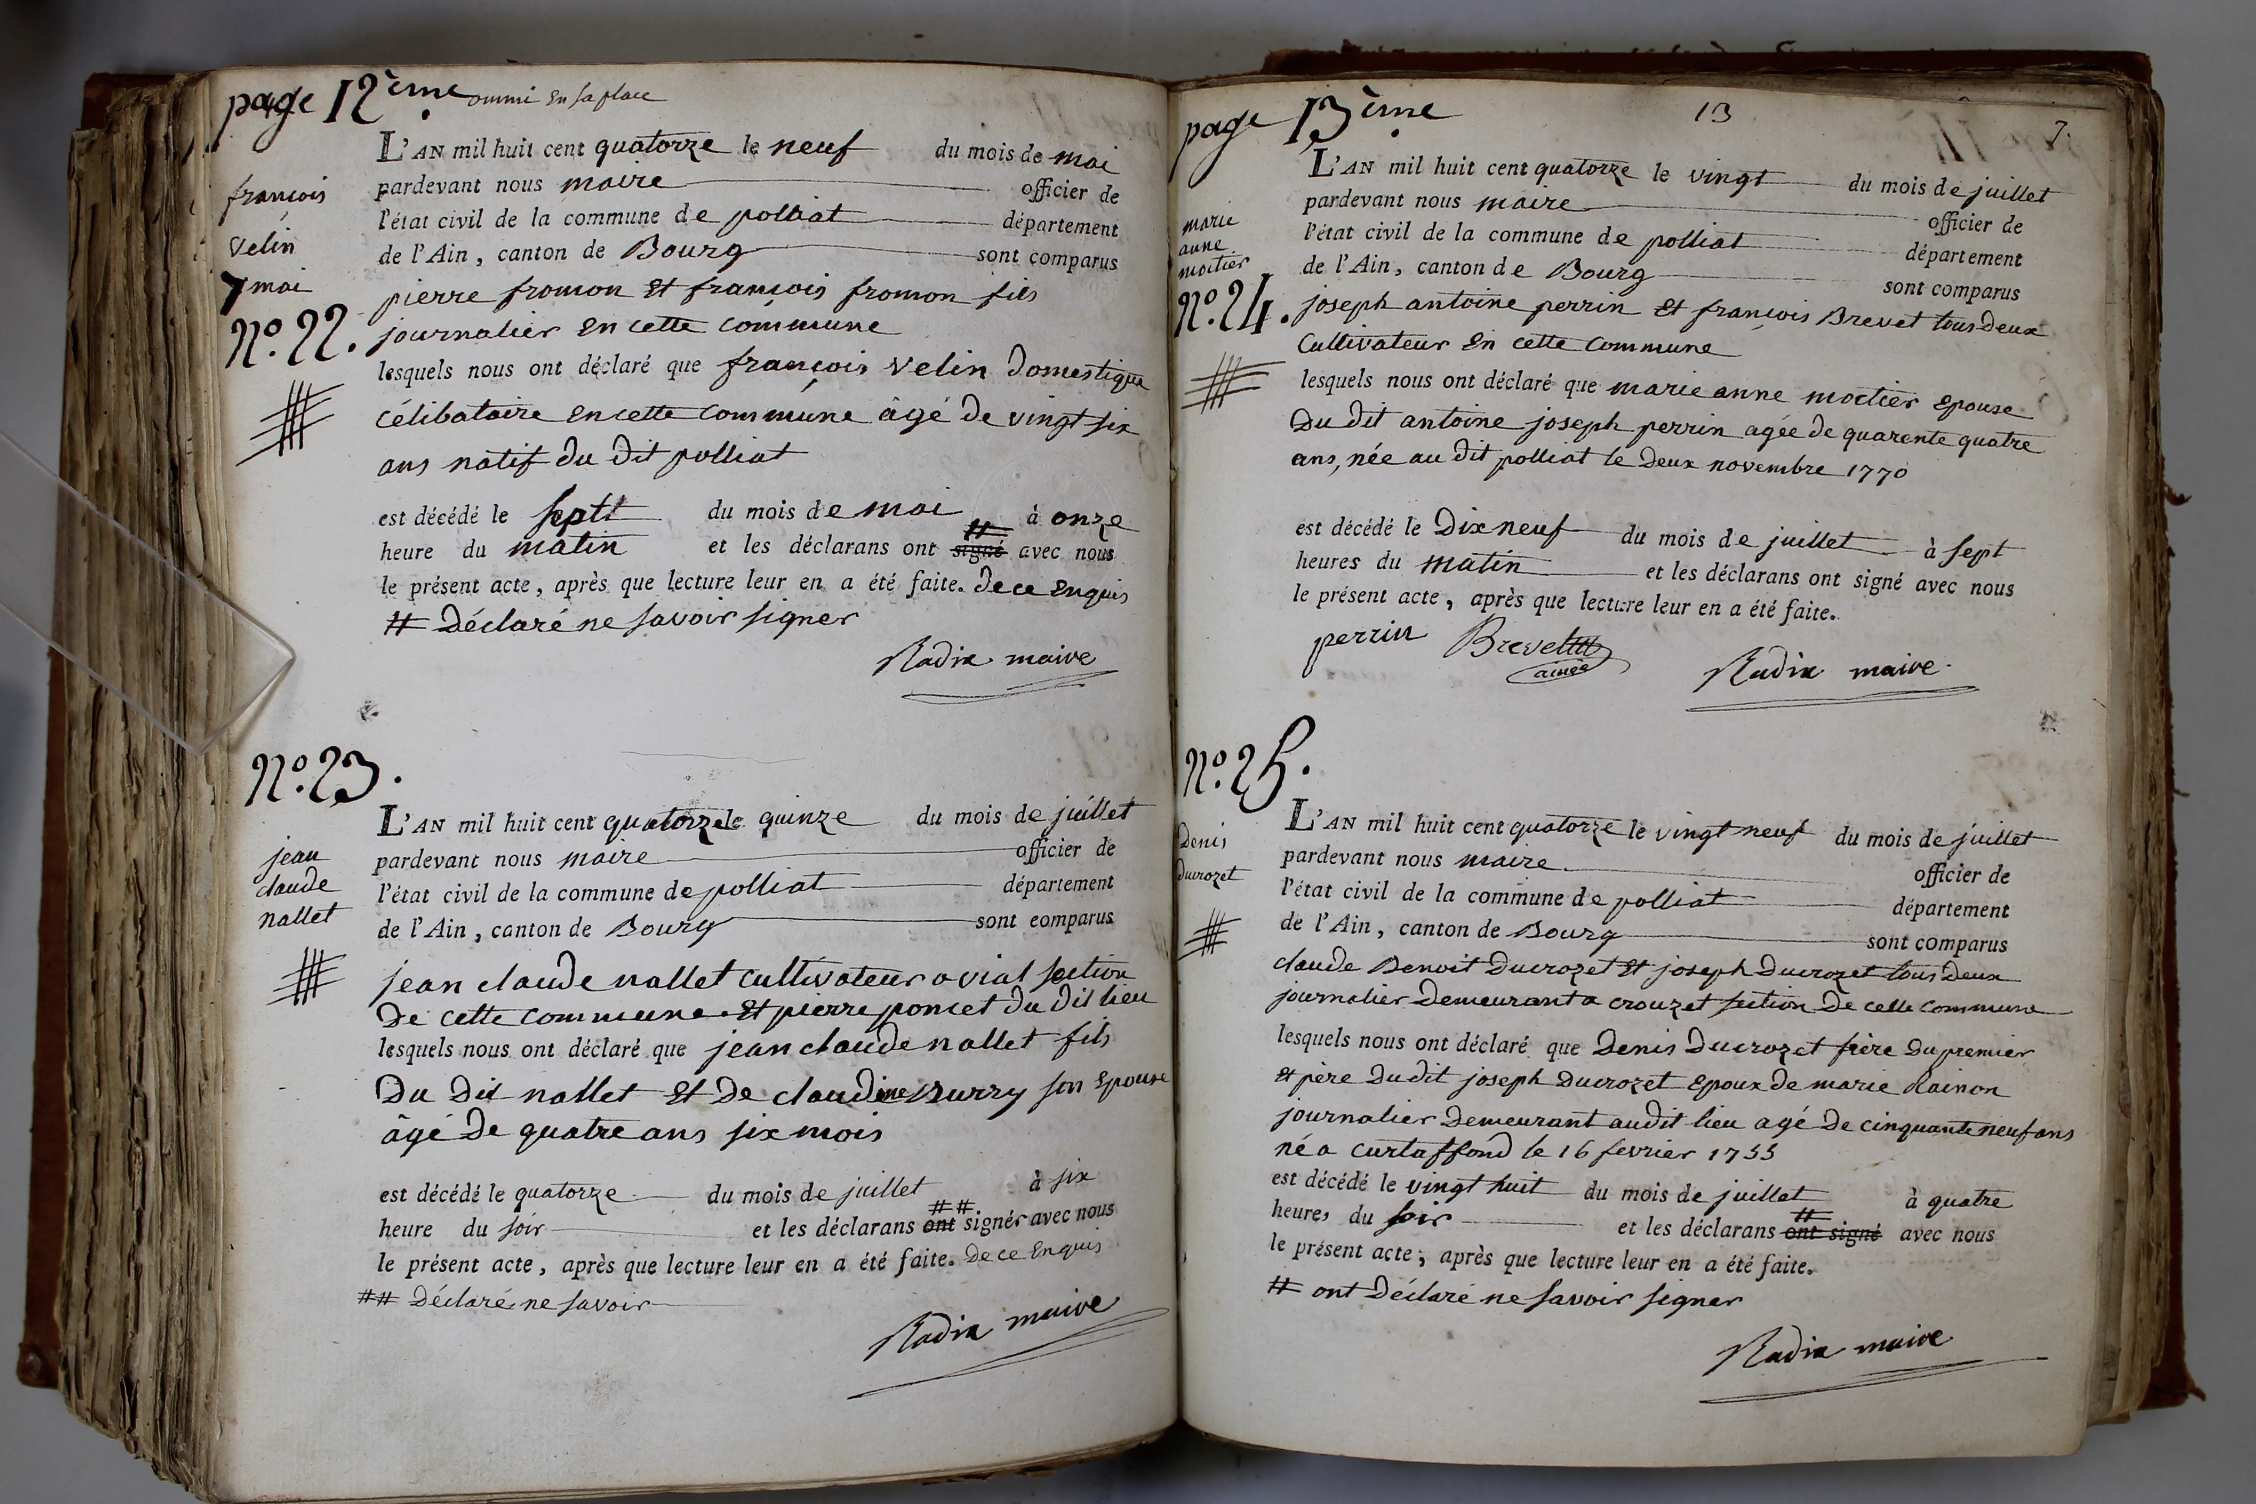 page 12ème ommi en sa place
L'AN mil huit cent quatorze le neuf du mois de mai
pardevant nous maire officier de
l'état civil de la commune de polliat département
de l'Ain, canton de Bourg sont comparus
françois
velin
7 mai
N.º 22.
pierre fromon et françois fromon fils
journalier en cette commune
lesquels nous ont déclaré que françois velin domestique
célibataire en cette commune âgé de vingt six
ans natif du dit polliat
est décédé le sept du mois de mai à onze
heure du matin et les déclarans ont # signé avec nous
le présent acte, après que lecture leur en a été faite. de ce enquis
# déclaré ne savoir signer
Radix maire
N.º 23.
jean
claude
nallet
L'AN mil huit cent quatorze le quinze du mois de juillet
pardevant nous maire officier de
l'état civil de la commune de polliat département
de l'Ain, canton de Bourg sont comparus
jean claude nallet cultivateur a vial section
de cette commune et pierre poncet du dit lieu
lesquels nous ont déclaré que jean claude nallet fils
du dit nallet et de claudine Burry son epouse
âgé de quatre ans six mois
est décédé le quatorze du mois de juillet à six
heure du soir et les déclarans ## ont signér avec nous
le présent acte, après que lecture leur en a été faite. de ce enquis
## déclaré ne savoir
Radix maire
page 13ème 13 7.
L'AN mil huit cent quatorze le vingt du mois de juillet
pardevant nous maire officier de
l'état civil de la commune de polliat département
de l'Ain, canton de Bourg sont comparus
marie
anne
moctier
N.º 24.
joseph antoine perrin et françois Brevet tous deux
cultivateur en cette commune
lesquels nous ont déclaré que marie anne moctier epouse
du dit antoine joseph perrin agée de quarente quatre
ans, née au dit polliat le deux novembre 1770
est décédé le dix neuf du mois de juillet à sept
heures du matin et les déclarans ont signé avec nous
le présent acte, après que lecture leur en a été faite.
perrin Brevet
ainé
Radix maire
N.º 25.
denis
ducrozet
L'AN mil huit cent quatorze le vingt neuf du mois de juillet
pardevant nous maire officier de
l'état civil de la commune de polliat département
de l'Ain, canton de Bourg sont comparus
claude Benoit ducrozet et joseph ducrozet tous deux
journalier demeurant a crouzet section de cette commune
lesquels nous ont déclaré que denis ducrozet frère du premier
et père du dit joseph ducrozet epoux de marie Rainon
journalier demeurant audit lieu agé de cinquante neuf ans
né a curtaffond le 16 fevrier 1755
est décédé le vingt huit du mois de juillet à quatre
heures du soir et les déclarans # ont signé avec nous
le présent acte, après que lecture leur en a été faite.
# ont déclaré ne savoir signer
Radix maire